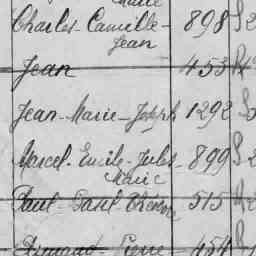 Charles-Camille- 898
Jean
Jean 453
Jean-Marie-Joseph 1292
Marcel-Emile-Jules 899
Marie
Paul-Paul 515
Armand-Pierre 454